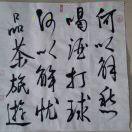 何以解愁
喝酒打球
何以解忧
品茶旅游